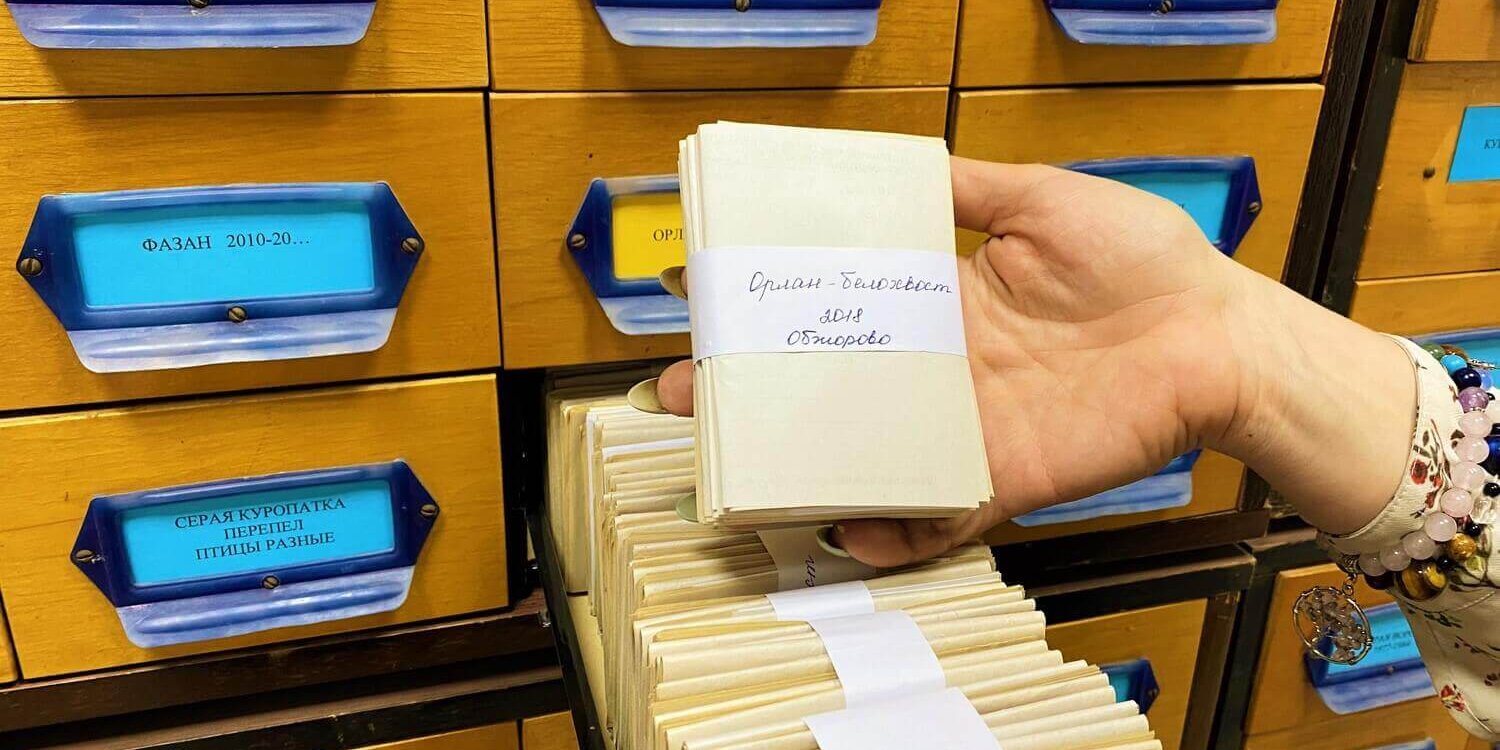 ФАЗАН 2010-20...
ОРЛ
Орлан-белохвост
2018
Обжорово
СЕРАЯ КУРОПАТКА
ПЕРЕПЕЛ
ПТИЦЫ РАЗНЫЕ